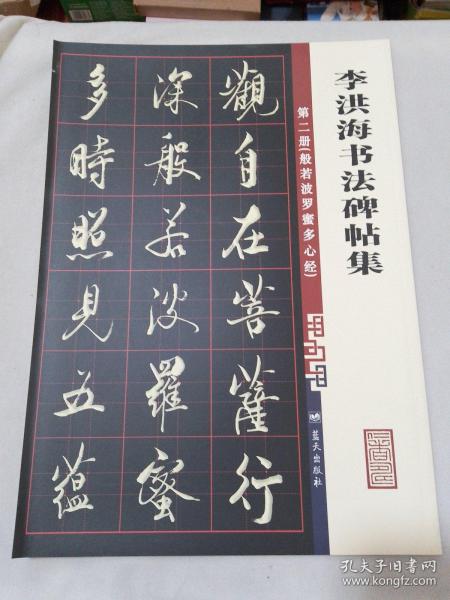 李洪海书法碑帖集
第二册(般若波罗蜜多心经)
觀自在菩薩行
深般若波羅蜜
多時照見五蘊
蓝天出版社
孔夫子旧书网
www.kongfz.com